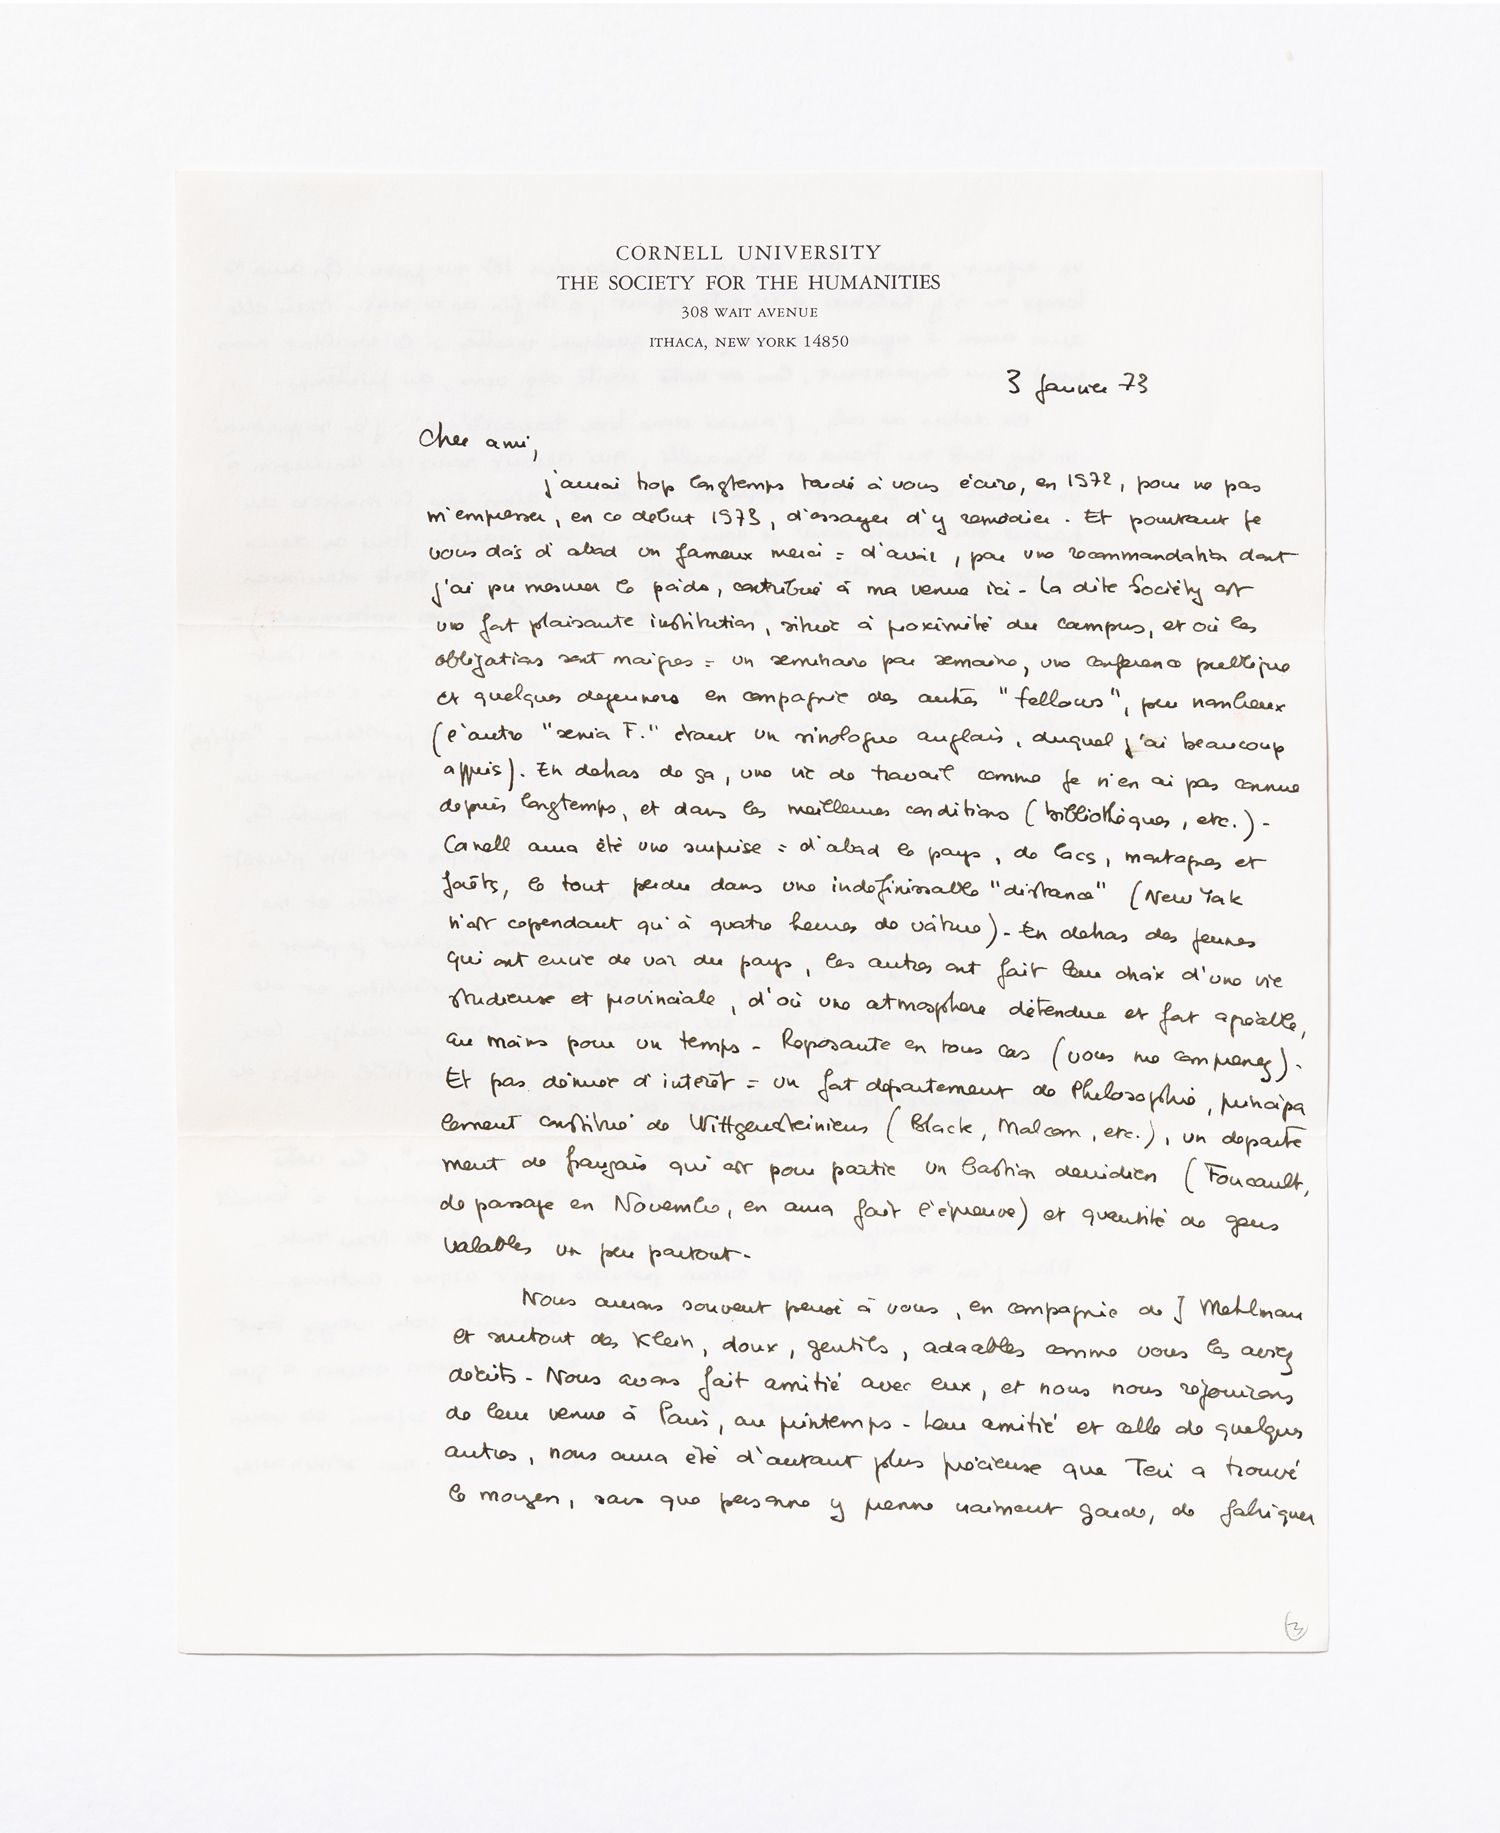 CORNELL UNIVERSITY
THE SOCIETY FOR THE HUMANITIES
308 WAIT AVENUE
ITHACA, NEW YORK 14850
3 Janvier 73
Cher ami,
j'aurai trop longtemps tardé à vous écrire, en 1972, pour ne pas
m'empresser, en ce début 1973, d'essayer d'y remédier. Et pourtant je
vous dois d'abord un fameux merci : d'avoir, par une recommandation dont
j'ai pu mesurer le poids, contribué à ma venue ici - La dite Society est
une fort plaisante institution, située à proximité du campus, et où les
obligations sont maigres : un séminaire par semaine, une conférence publique
et quelques dejeuners en compagnie des autres "fellows", peu nombreux
(l'autre "senior F." étant un sinologue anglais, duquel j'ai beaucoup
appris). En dehors de ça, une vie de travail comme je n'en ai pas connue
depuis longtemps, et dans les meilleures conditions (bibliothèques, etc.) -
Cornell aura été une surprise : d'abord le pays, de lacs, montagnes et
forêts, le tout perdu dans une indéfinissable "distance" (New York
n'est cependant qu'à quatre heures de voiture) - En dehors des jeunes
qui ont envie de voir du pays, les autres ont fait leur choix d'une vie
studieuse et provinciale, d'où une atmosphère détendue et fort agréable,
au moins pour un temps - Reposante en tous cas (vous me comprenez) -
Et pas dénuée d'intérêt : un fort département de Philosophie, principa
lement constitué de Wittgensteiniens (Black, Malcom, etc.), un departe
ment de français qui est pour partie un bastion derridien (Foucault,
de passage en Novembre, en aura fait l'épreuve) et quantité de gens
valables un peu partout -
Nous aurons souvent pensé à vous, en compagnie de J Mehlman
et surtout des Klein, doux, gentils, adorables comme vous les aviez
décrits - Nous avons fait amitié avec eux, et nous nous réjouissons
de leur venue à Paris, au printemps - Leur amitié et celle de quelques
autres, nous aura été d'autant plus précieuse que Teri a trouvé
le moyen, sans que personne y prenne vraiment garde, de fabriquer